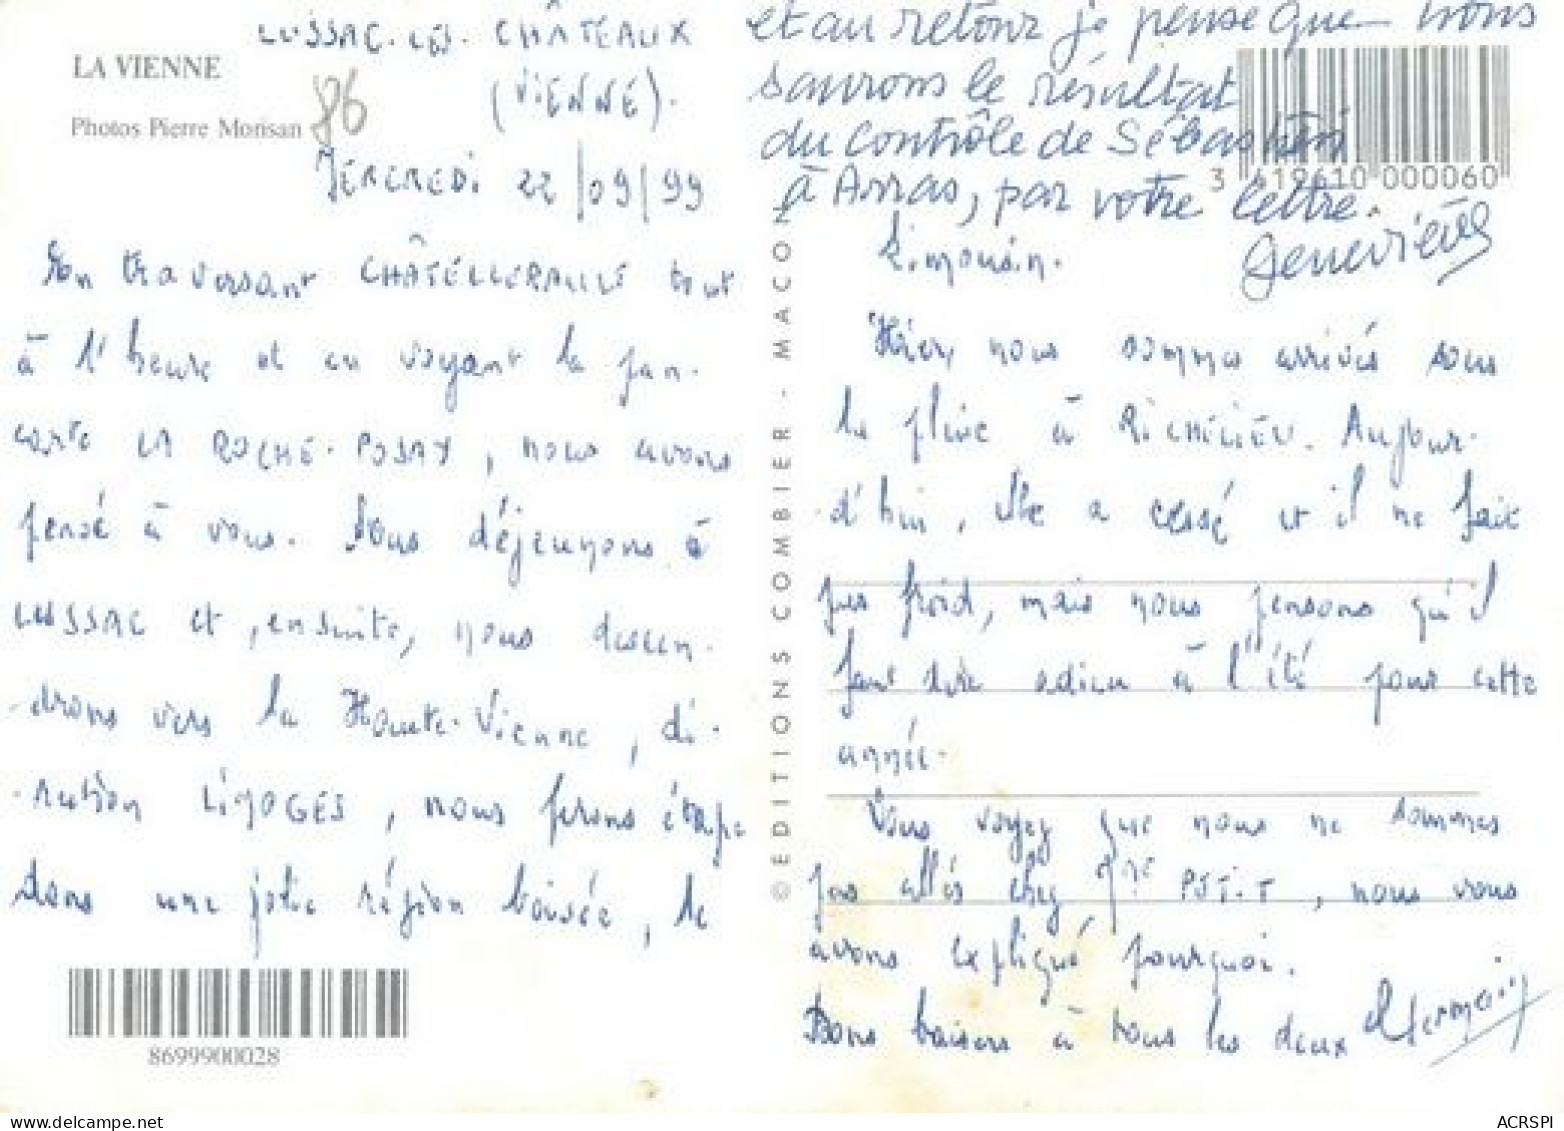 LA VIENNE
Photos Pierre Morisan
86
LUSSAC-LES-CHÂTEAUX
(VIENNE).
MERCREDI 22/09/99
En traversant CHÂTELLERAULT tout
à l'heure et en voyant la pan-
carte LA ROCHE-POSAY, nous avons
pensé à vous. Nous déjeunons à
LUSSAC et, ensuite, nous descen-
drons vers la Haute-Vienne, di-
-rection LIMOGES, nous ferons étape
dans une jolie région boisée, le
8699900028
© EDITIONS COMBIER - MACON
et au retour je pense que nous
saurons le résultat
du contrôle de Sébastien
à Arras, par votre lettre.
Geneviève
3 419610 000060
Limousin.
Hier, nous sommes arrivés sous
la pluie à RICHELIEU. Aujour-
d'hui, elle a cessé et il ne fait
pas froid, mais nous pensons qu'il
faut dire adieu à l'été pour cette
année.
Vous voyez que nous ne sommes
pas allés chez Mme PETIT, nous vous
avons expliqué pourquoi.
Bons baisers à tous les deux Germain
ACRSPI